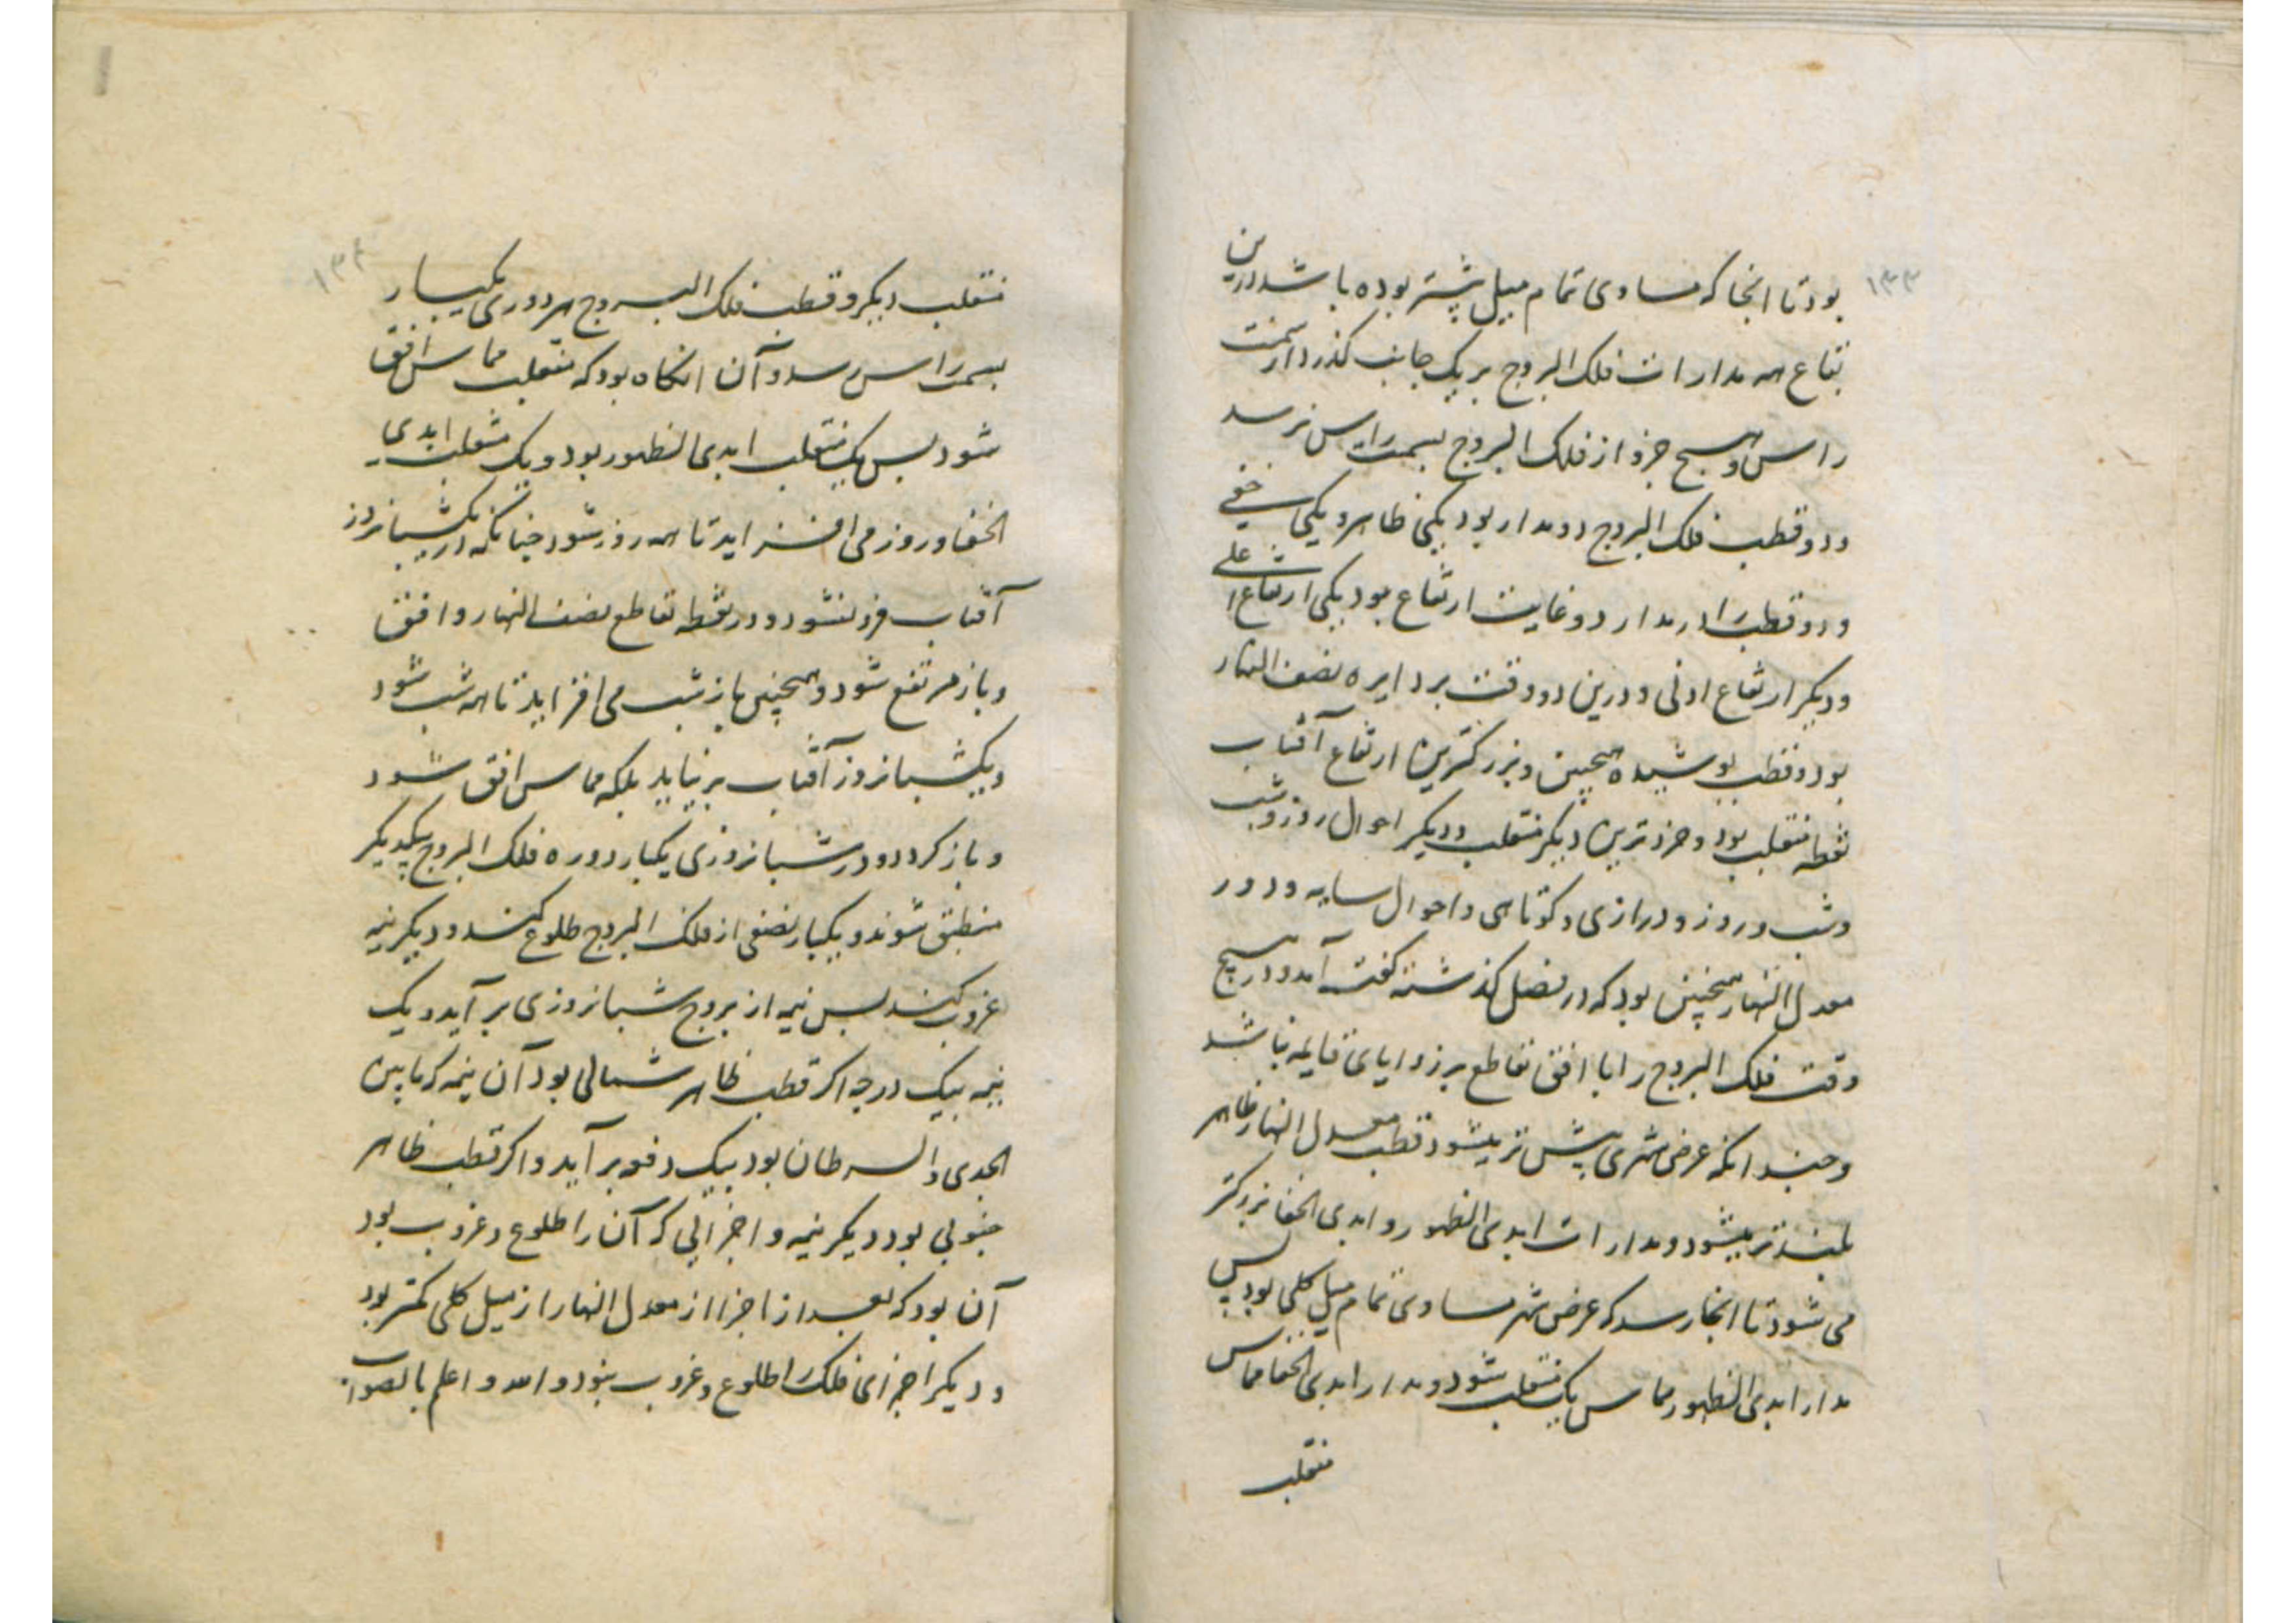 ۱۳۳
بود تا انجا که مساوی تمام میل بیشتر بوده باشد درین
بقاع همه مدارات فلک البروج بر یک جانب کذرد از سمت
راس و هیچ جزو از فلک البروج بسمت راس نرسد
و دو قطب فلک البروج دو مدار بود یکی ظاهر و یکی خفی
و دو قطب را در مدار دو غایت ارتفاع بود یکی ارتفاع اعلی
و دیکر ارتفاع ادنی و درین دو وقت بر دایره نصف النهار
بود و قطب پوشیده همچنین و بزرکترین ارتفاع آفتاب
نقطه منقلب بود و خردترین دیکر منقلب و دیکر احوال روز و شب
و شب و روز و درازی و کوتاهی و احوال سایه و دور
معدل النهار همچنین بود که در فصل کذشته کفته آمد و در هیچ
وقت فلک البروج را با افق تقاطع بر زوایای قایمه نباشد
و چندانکه عرض شهری بیش تر میشود قطب معدل النهار ظاهر
بلندتر میشود و مدارات ابدی الظهور و ابدی الخفا بزرکتر
می شود تا انجا رسد که عرض شهر مساوی تمام میل کلی بود پس
مدار ابدی الظهور مماس یک منقلب شود و مدار ابدی الخفا مماس
منقلب
۱۳۴
منقلب دیکر و قطب فلک البروج هر دوری یکبار
بسمت راس رسد و آن انکاه بود که منقلب مماس افق
شود پس یک منقلب ابدی الظهور بود و یک منقلب ابدی
الخفا و روز می افزاید تا همه روز شود چنانکه در یکشبانروز
آفتاب فرو نشود و در نقطه تقاطع نصف النهار و افق
و باز مرتفع شود و همچنین باز شب می افزاید تا همه شب شود
و یکشبانروز آفتاب بر نیاید بلکه مماس افق شود
و باز کردد و در شبانروزی یکبار دوره فلک البروج بیکدیکر
منطبق شوند و یکبار نصفی از فلک البروج طلوع کند و دیکر نیمه
غروب کند پس نیمه از بروج شبانروزی بر آید و یک
نیمه بیک درجه اکر قطب ظاهر شمالی بود آن نیمه که مابین
الجدی و السرطان بود بیک دفعه بر آید و اکر قطب ظاهر
جنوبی بود دیکر نیمه و اجزائی که آن را طلوع و غروب بود
آن بود که بعد از اجزا از معدل النهار از میل کلی کمتر بود
و دیکر اجزای فلک را طلوع و غروب نبود و الله اعلم بالصواب